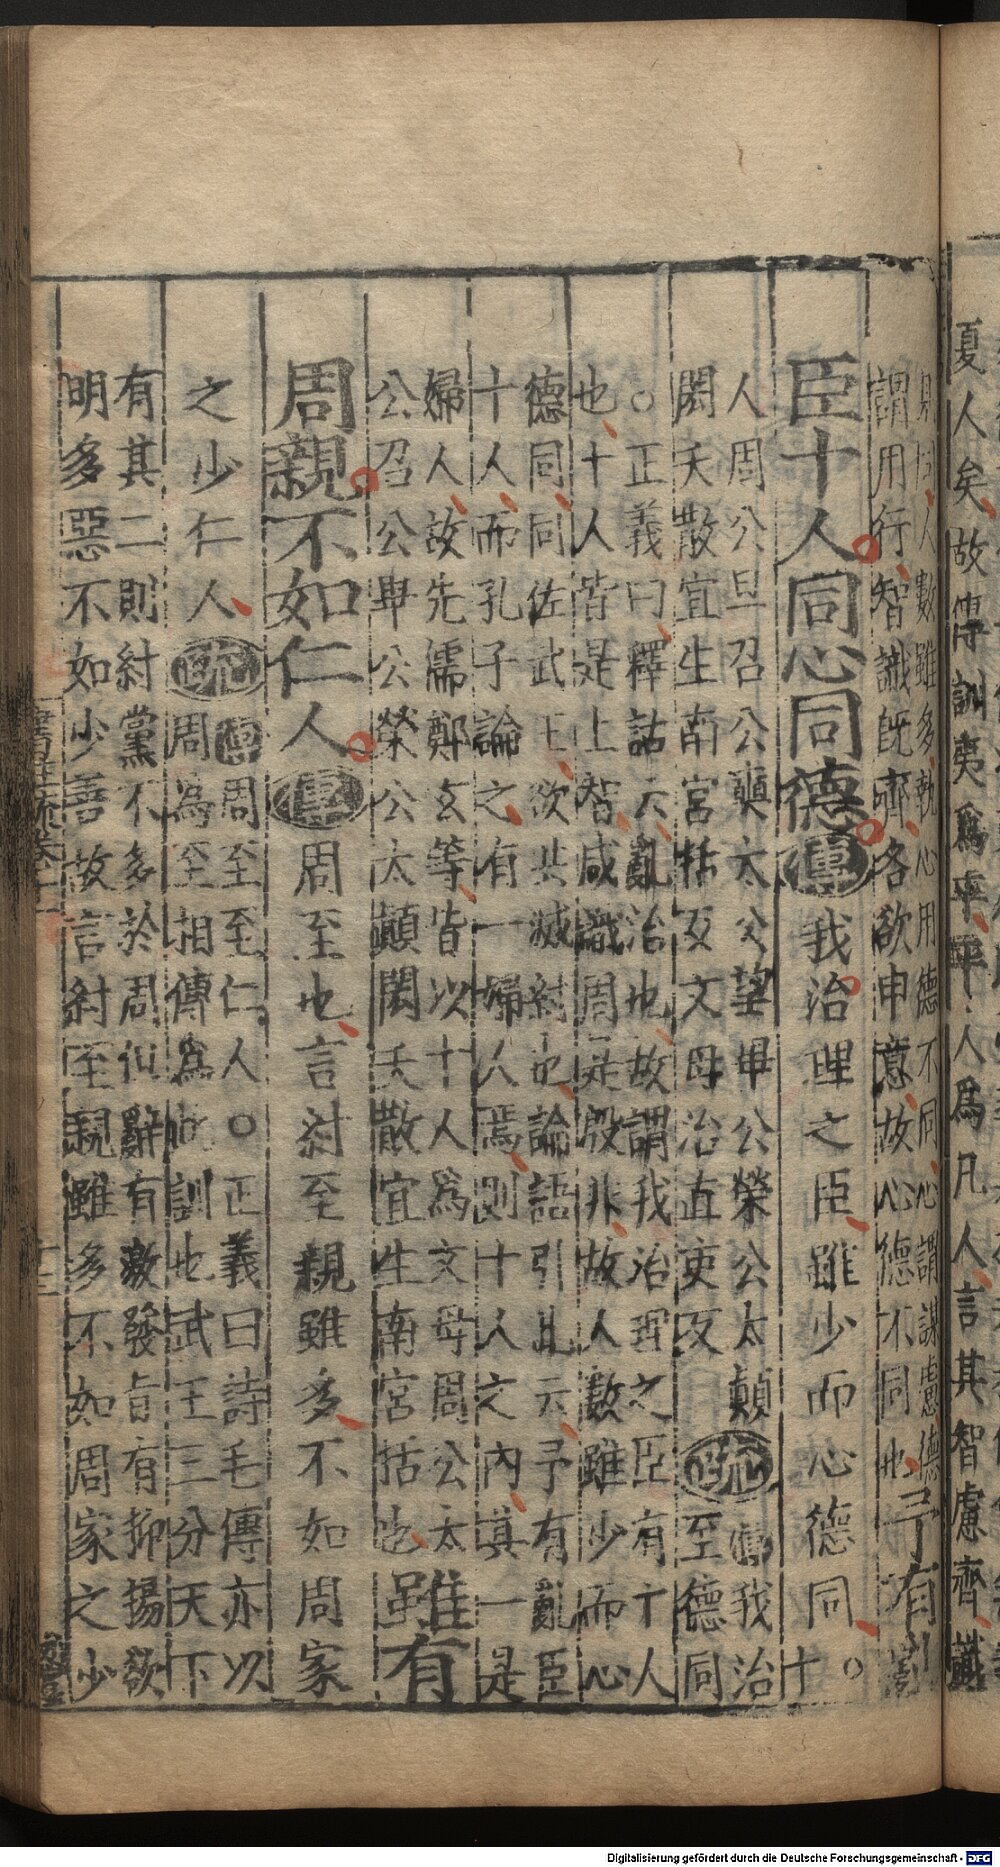 夏人矣故傳訓夷爲平平人爲凡人言其智慮齊識
見同人數雖多執心用德不同心謂謀慮德
謂用行智識旣齊各欲申意故心德不同也予有亂
臣十人同心同德傳我治理之臣雖少而心德同○十
人周公旦召公奭太公望畢公榮公太顛
閎夭散宜生南宮括及文母治直吏反疏傳我治至德同
○正義曰釋詁云亂治也故謂我治理之臣有十人
也十人皆是上智咸識周是殷非故人數雖少而心
德同同佐武王欲共滅紂也論語引此云予有亂臣
十人而孔子論之有一婦人焉則十人之內其一是
婦人故先儒鄭玄等皆以十人爲文母周公太
公召公畢公榮公太顛閎夭散宜生南宮括也雖有
周親不如仁人傳周至也言紂至親雖多不如周家
之少仁人疏傳周至至仁人○正義曰詩毛傳亦以
周爲至相傳爲此訓也武王三分天下
有其二則紂黨不多於周但辭有激發旨有抑揚欲
明多惡不如少善故言紂至親雖多不如周家之少
Digitalisierung gefördert durch die Deutsche Forschungsgemeinschaft - DFG